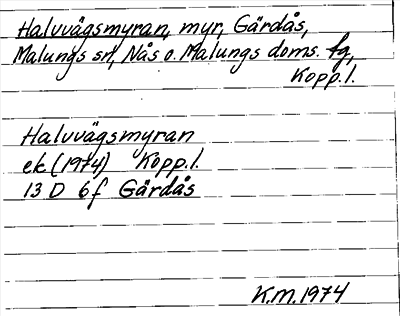 Halvvägsmyran, myr, Gärdås,
Malungs sn, Nås o. Malungs doms. fg,
Kopp.l.
Halvvägsmyran
ek (1974) Kopp.l.
13 D 6f Gärdås
K.M. 1974